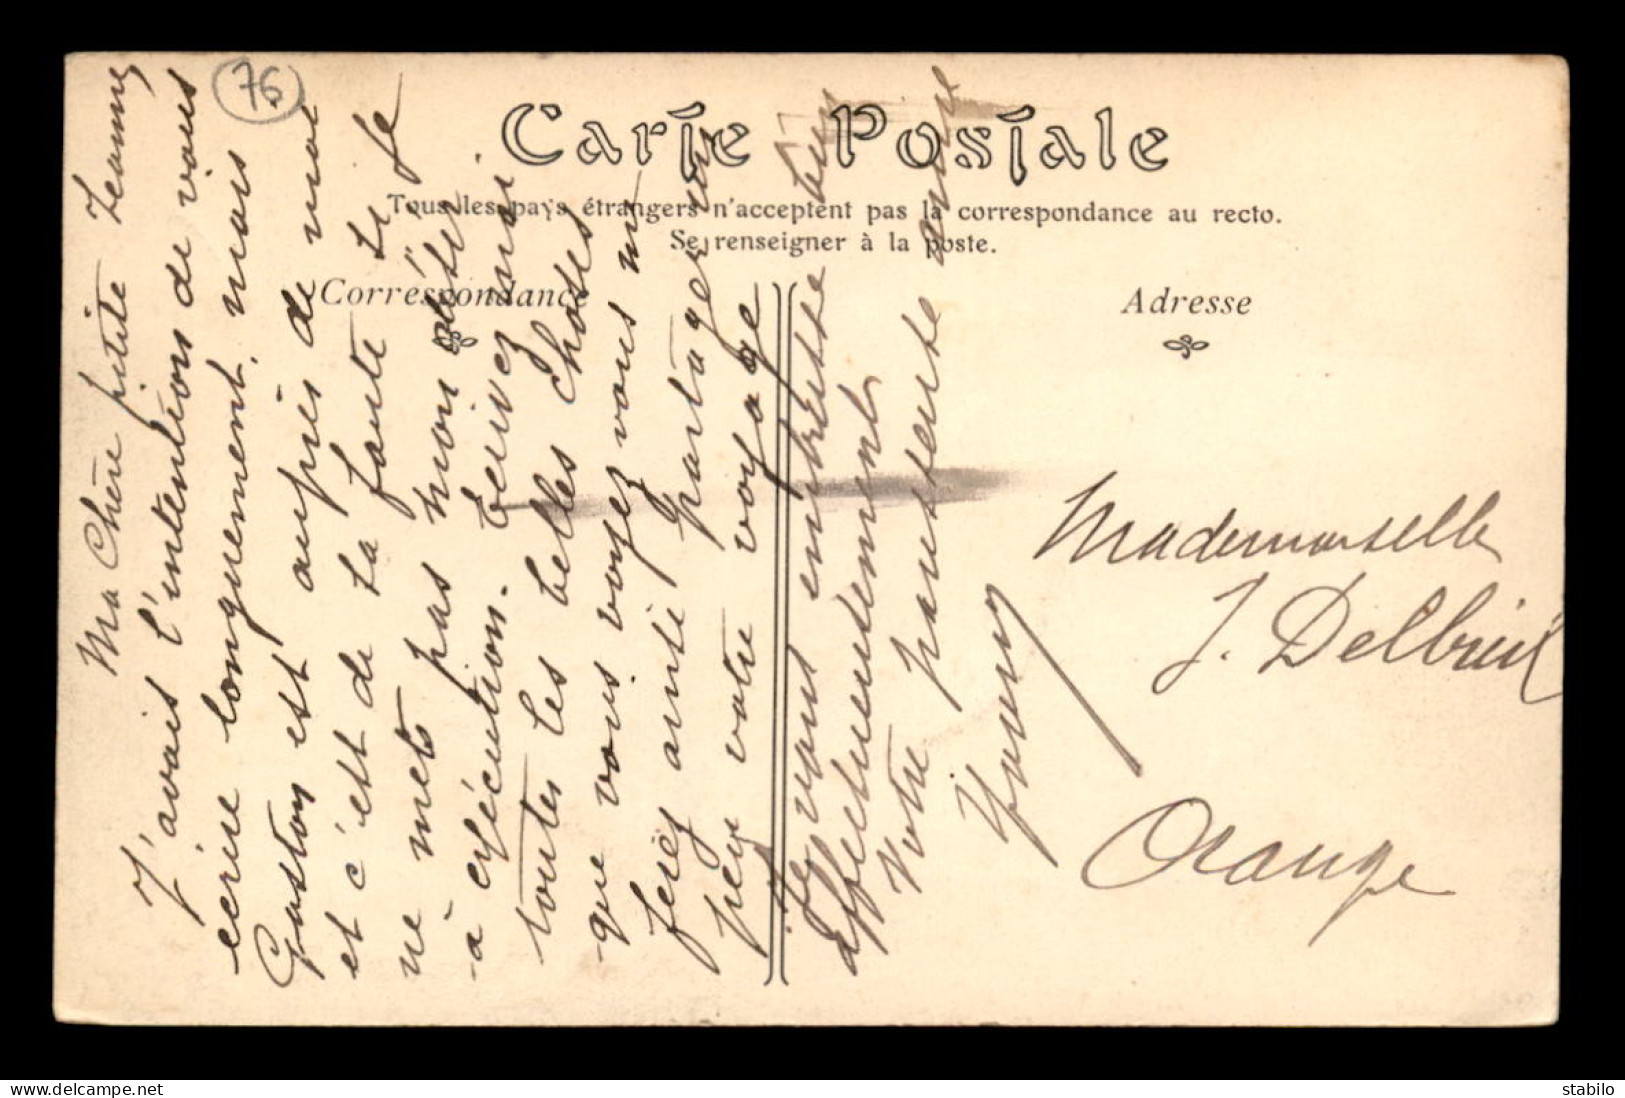 76
Carte Postale
Tous les pays étrangers n'acceptent pas la correspondance au recto.
Se renseigner à la poste.
Correspondance
Adresse
Ma Chère petite Jeanne
J'avais l'intention de vous
écrire longuement, mais
Gaston est auprès de moi
et c'est de la faute si je
ne mets pas mon désir
à exécution. Écrivez moi
toutes les belles choses
que vous voyez vous me
ferez ainsi partager un
peu votre voyage
Je vous embrasse bien
affectueusement
Votre amie
Mademoiselle
J. Delbreil
Orange
delcampe.net
stabilo